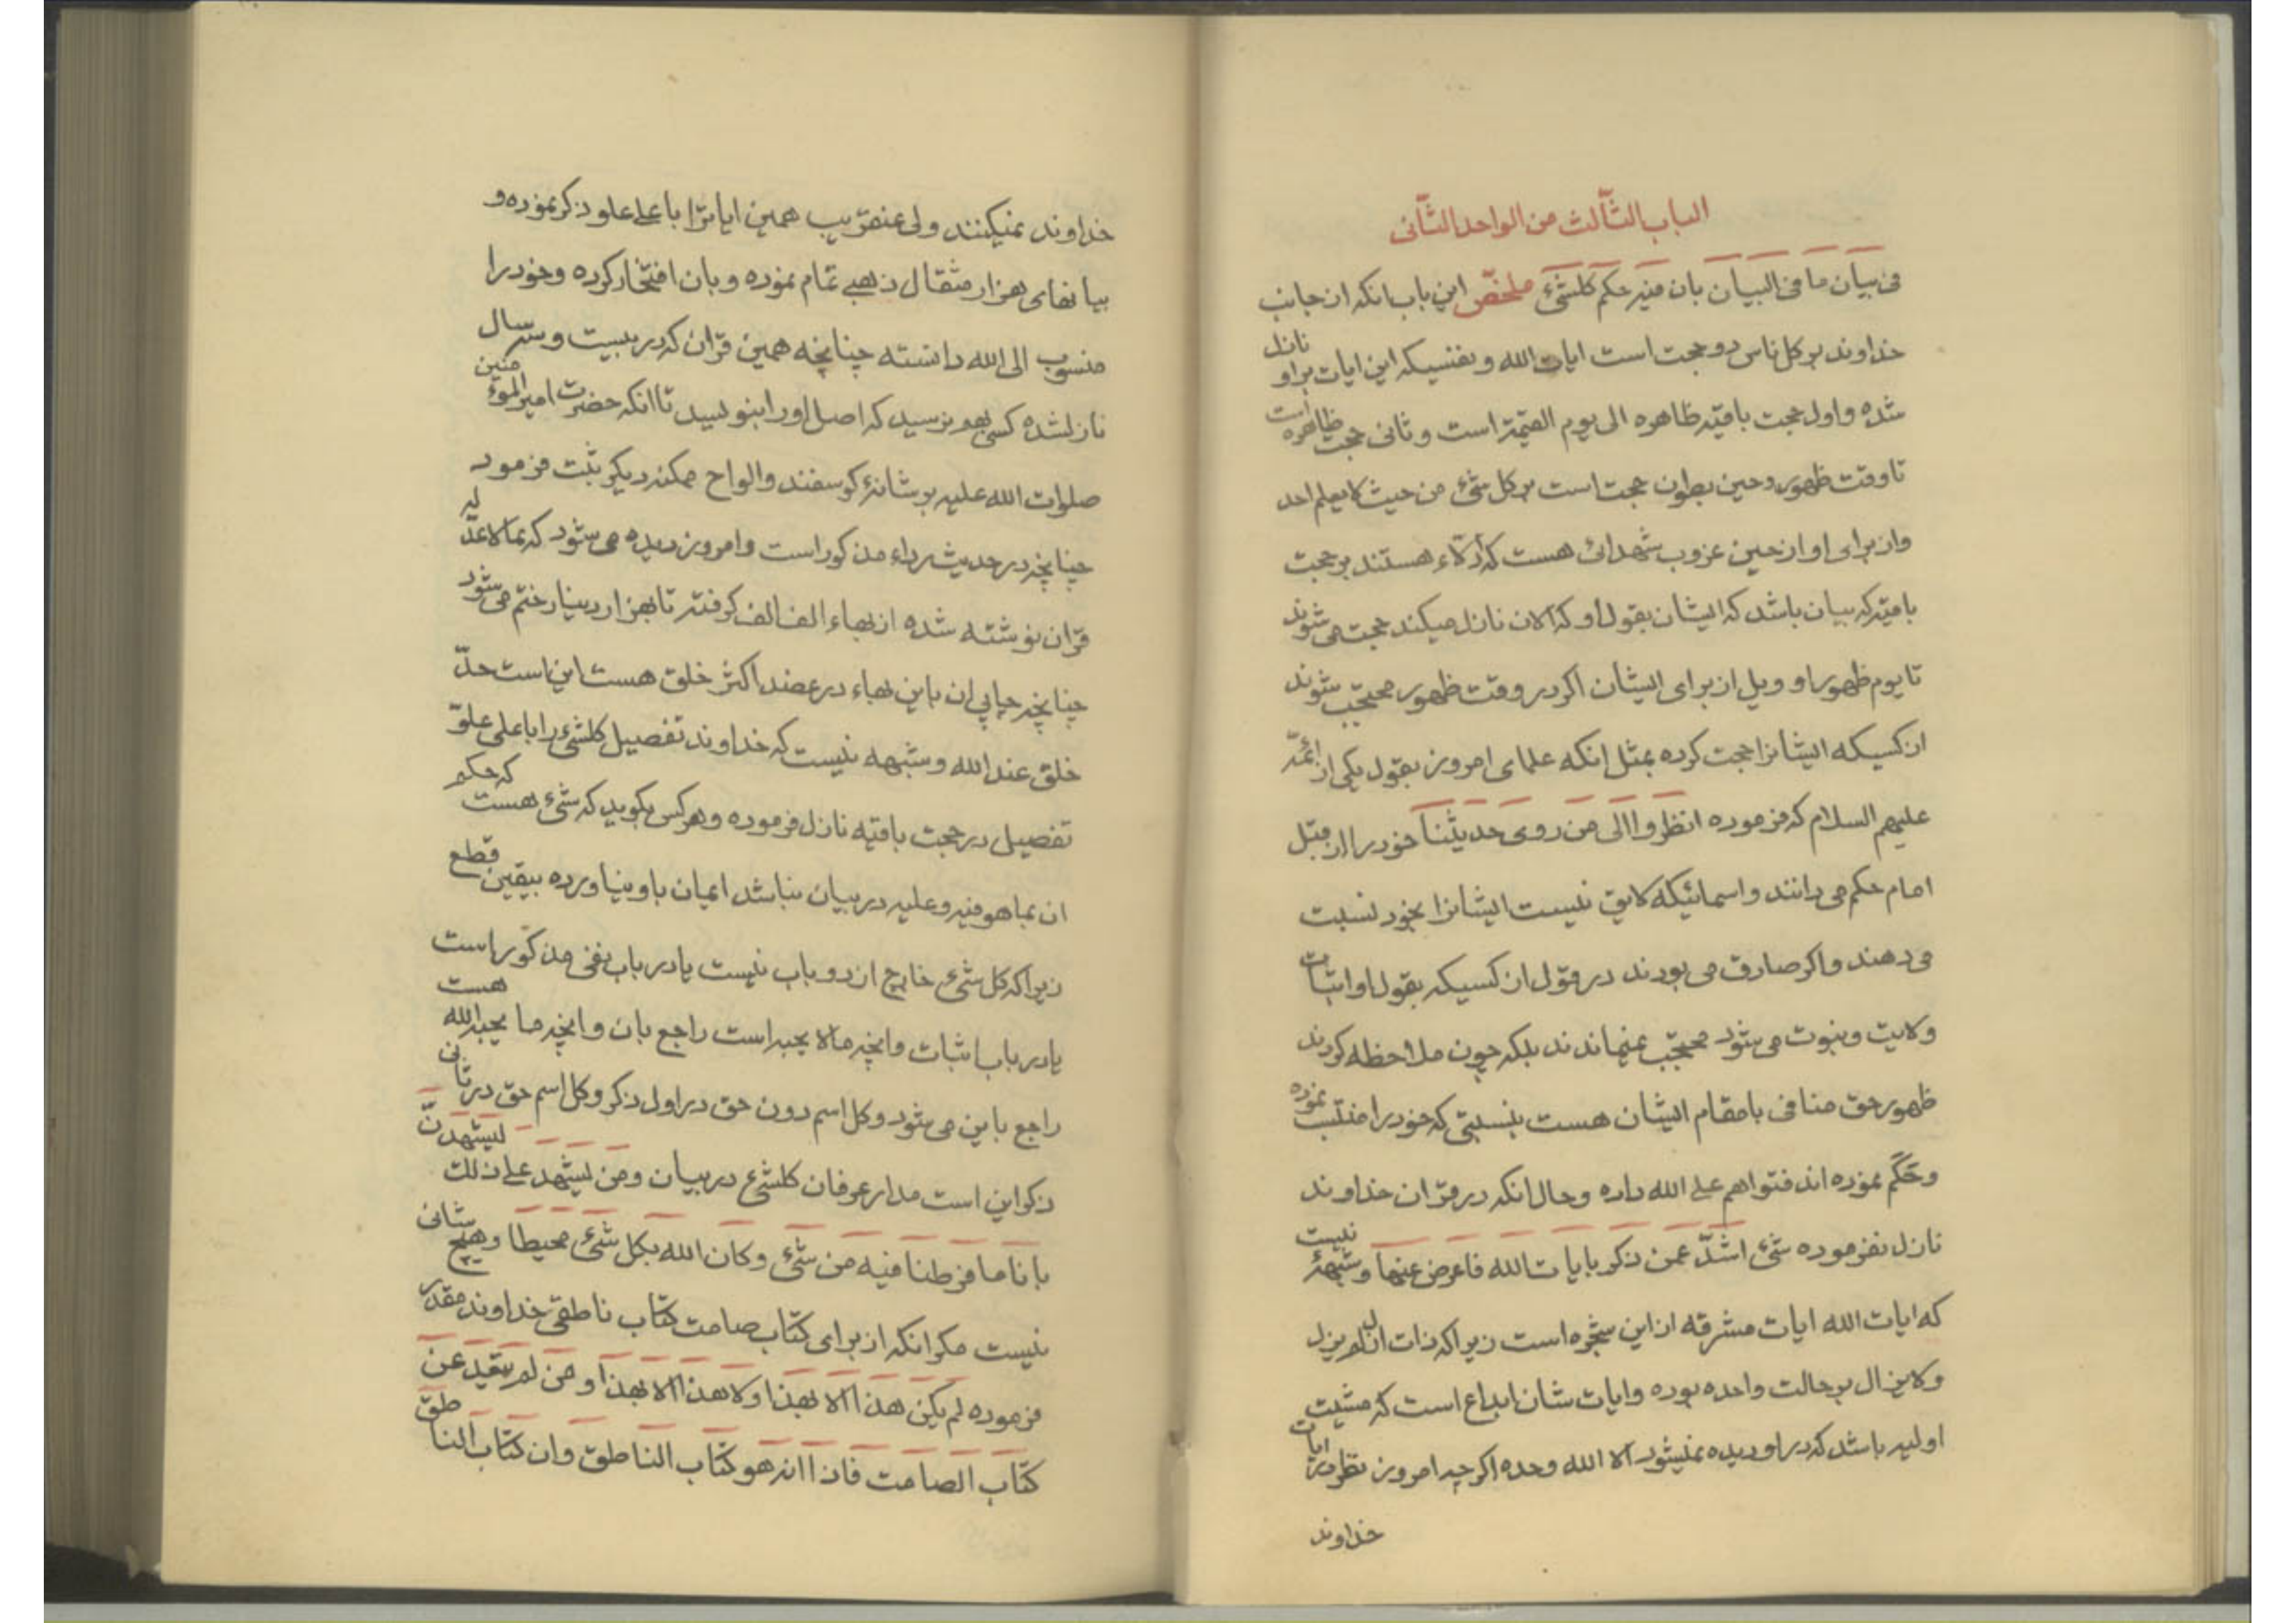 الباب الثّالث من الواحد الثّانی
فی بیان ما فی البیان بان فیه حکم کلشئ ملخّص این باب انکه از جانب
خداوند بر کل ناس دو حجت است ایات الله و نفسیکه این ایات بر او نازل
شده و اول حجت باقیه ظاهره الی یوم القیمة است و ثانی حجت ظاهره است
تا وقت ظهور و حین بطون حجت است بر کل شئ من حیث لا یعلم احد
و از برای او از حین غروب شهدائی هست که ادلاء هستند بر حجت
باقیه که بیان باشد که ایشان بقول او که الان نازل میکند حجت می شوند
تا یوم ظهور او و ویل از برای ایشان اکر در وقت ظهور محتجب شوند
از کسیکه ایشانرا حجت کرده بمثل انکه علمای امروز بقول یکی از ائمّه
علیهم السلام که فرموده انظروا الی من روی حدیثنا خود را از قبل
امام حکم می دانند و اسمائیکه لایق نیست ایشانرا بخود نسبت
می دهند و اکر صادق می بودند در قول از کسیکه بقول او اثبات
ولایت و نبوت می شود محتجب نمیماندند بلکه چون ملاحظه کردند
ظهور حق منافی با مقام ایشان هست بنسبتی که خود را منتسب نموده
و حَکَم نموده اند فتواهم علی الله داده و حال انکه در قران خداوند
نازل نفرموده شئ اشدّ عمن ذکر بایات الله فاعرض عنها و شبهۀ نیست
که ایات الله ایات مشرقه از این شجره است زیرا که ذات ازل لم یزل
و لا یزال بر حالت واحده بوده و ایات شان ابداع است که مشیت
اولیه باشد که در او دیده نمیشود الا الله وحده اکر چه امروز نظر در ایات
خداوند
خداوند نمیکنند ولی عنقریب همین ایاترا باعلی علو ذکر نموده و
ببهائی هزار مثقال ذهب تمام نموده و بان افتخار کرده و خود را
منسوب الی الله دانسته چنانچه همین قران که در بیست و سه سال
نازلشده کسی بهم نرسید که اصل او را بنویسید تا انکه حضرت امیر المومنین
صلوات الله علیه بر شانۀ کوسفند و الواح ممکنه دیکر ثبت فرمود
چنانچه در حدیث رداء مذکور است و امروز دیده می شود که بما لا عدّ لیه
قران نوشته شده از بهاء الف الف کرفته تا بهزار دینار ختم می شود
چنانچه چاپی ان باین بهاء در عضد اکثر خلق هست این است حدّ
خلق عند الله و شبهه نیست که خداوند تفصیل کلشئ را باعلی علوّ
تفصیل در حجت باقیه نازل فرموده و هر کس بکوید که شئ هست که حکم
ان بما هو فیه و علیه در بیان نباشد ایمان باو نیاورده بیقین قطع
زیرا که کل شئ خارج از دو باب نیست یا در باب نفی مذکور است
یا در باب اثبات و انچه ما لا یحبه است راجع بان و انچه ما یحبه الله هست
راجع باین می شود و کل اسم دون حق در اول ذکر و کل اسم حق در ثانی
ذکر این است مدار عرفان کلشئ در بیان و من یشهد علی ذلک لیشهدنّ
بانا ما فرطنا فیه من شئ و کان الله بکل شئ محیطا و هیچ شانی
نیست مکر انکه از برای کتاب صامت کتاب ناطقی خداوند مقدر
فرموده لم یکن هذا الا بهذا و لا هذا الا بهذا و من لم یتعید عن
کتاب الصامت فاذا انه هو کتاب الناطق وان کتاب الناطق